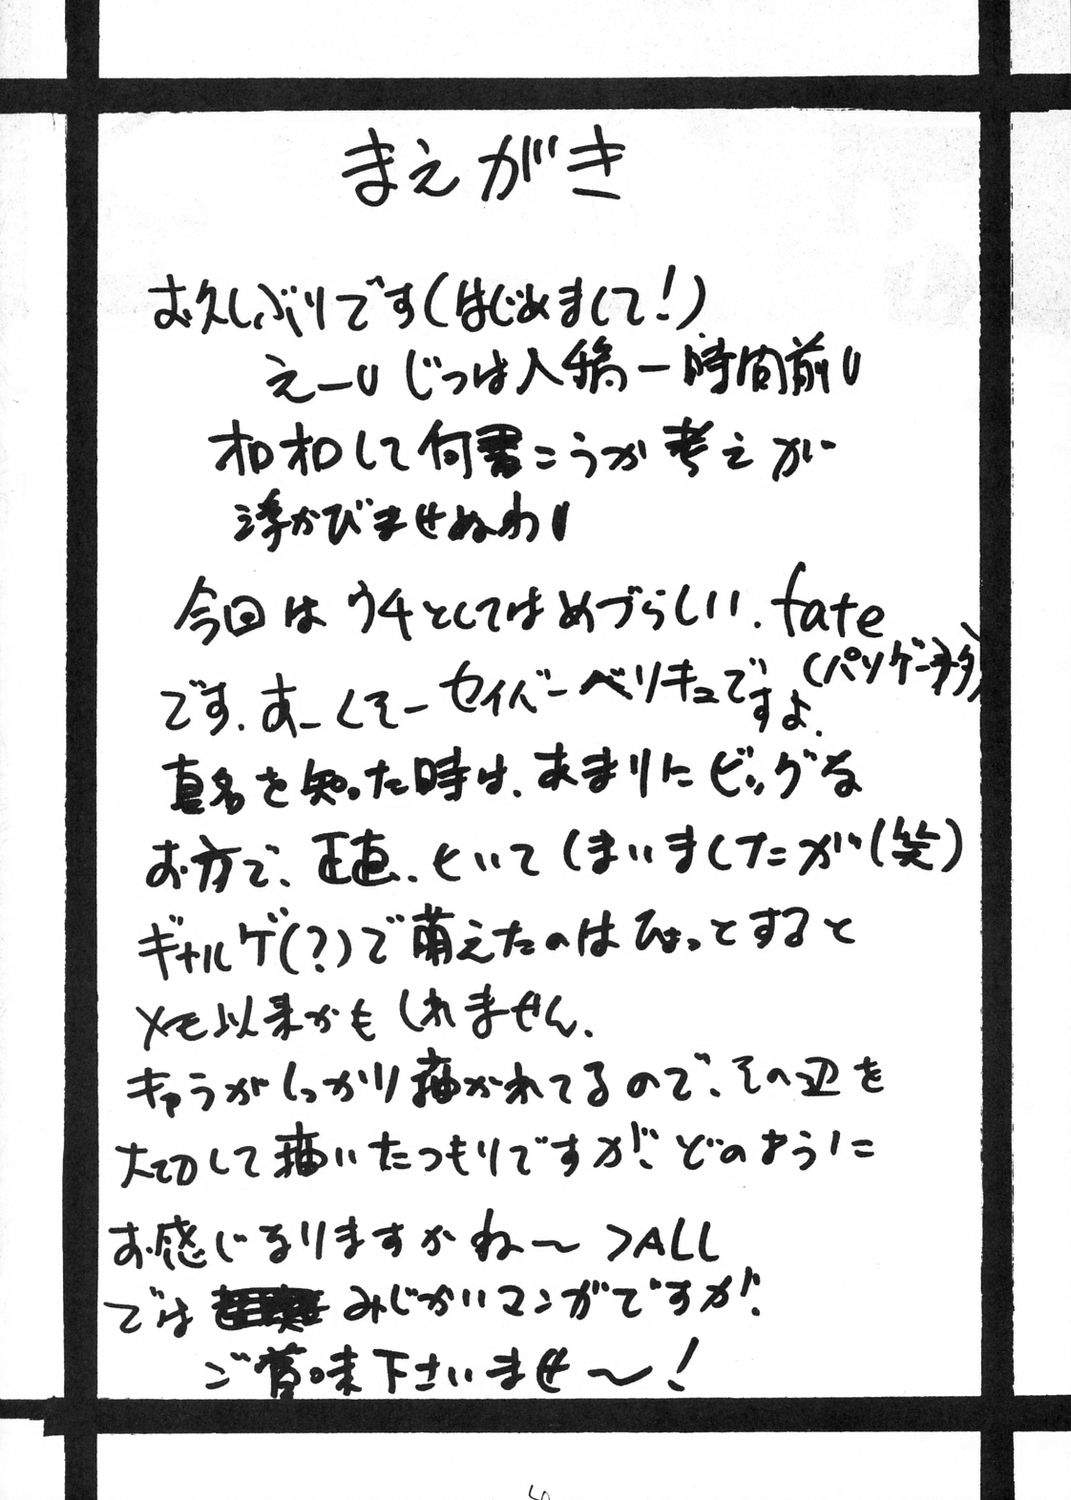 まえがき
お久しぶりです(はじめまして!)
えーじつは入稿一時間前
オロオロして何書こうか考えが
浮かびませぬわ
今回はうちとしてはめづらしい、fate
です。あーくそーセイバーベリキュですよ。(パソゲーヲタ)
真名を知った時は、あまりにビッグな
お方で、正直、ひいてしまいましたが(笑)
ギャルゲ(?)で萌えたのはひょっとすると
メモ以来かもしれません。
キャラがしっかり描かれてるので、その辺を
大切して描いたつもりですが、どのように
お感じなりますかね〜>ALL
では みじかいマンガですが、
ご賞味下さいませ〜!